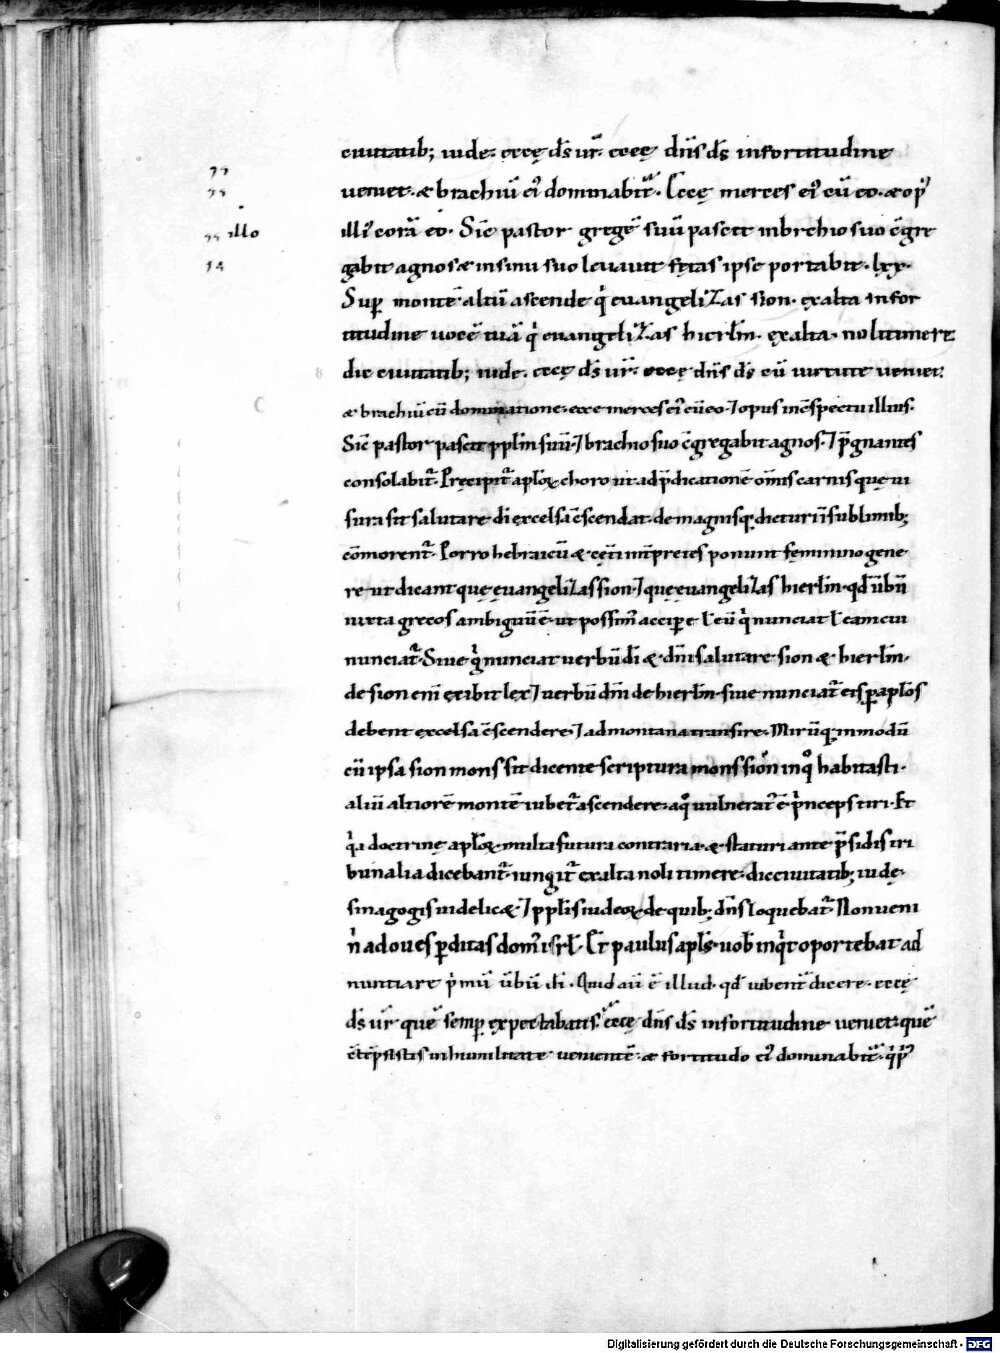 ciuitatib; iude. ecce d̄s ur̄. ecce dn̄s d̄s infortitudine
ueniet. & brachiū ei᾽ dominabit᷑. Ecce merces ei᾽ cū eo. & op᾽
illo
illi᾽ corā eo. Sic̄ pastor gregē suū pascet inbrchio suo c̄gre
gabit agnos & insinu suo leuauit fętas ipse portabit. lxx.
Sup̱ montē altū ascende q̇ euangelizas sion. exalta infor
titudine uocē tuā q̇ euangelizas hierl̄m. exalta. noli timere
dic ciuitatib; iude. ecce d̄s ur̄. ecce dn̄s d̄s cū uirtute ueniet.
& brachiū cū dominatione. ecce merces ei᾽ cū eo. ⁊ opus inc̄spectu illius.
Sic̄ pastor pascet ppl̄m suū. ⁊ brachio suo c̄gregabit agnos. ⁊ p̄gnantes
consolabit᷑. Pręcipit᷑ apl̄oꝝ choro ut ad p̄dicationē om̄is carnis quę ui
sura sit salutare dī excelsa c̄scendat. de magnisq; dicturi īsublimib;
cōmorent᷑. Porro hebraicū & cęt̄i int̄pretes ponunt feminino gene
re ut dicant quę euangelizas sion. ⁊ quę euangelizas hierl̄m. qd̄ ūbū
iuxta grecos ambiguū ē. ut possim᾽ accip̱e ł eū q̇ nunciat ł eam cui
nunciat᷑. Siue q̇ nunciat uerbū dī & dn̄i salutare sion & hierl̄m.
de sion eni᷑ exibit lex ⁊ uerbū dn̄i de hierl̄m. siue nunciat᷑ eis p̱ apl̄os
debent excelsa c̄scendere. ⁊ ad montana transire. Mirūq; inmodū
cū ipsa sion mons sit dicente scriptura mons sion inqͦ habitasti.
aliū altiorē montē iubet᷑ ascendere. a qͦ uulnerat᾽ ē ṗnceps tiri. Et
q̇a doctrinę apl̄oꝝ. multa futura contraria. & staturi ante p̄sidis tri
bunalia dicebant᷑. iungit᷑ exalta noli timere. dic ciuitatib; iude.
sinagogis uidelic&. ⁊ ppl̄is iudeoꝝ. de quib; dn̄s loquebat᷑. Non ueni
n̄ ad oues p̱ditas dom᾽ isrł. Et paulus apl̄s. uob̄ inq̇t oportebat ad
nuntiare ṗmū ūbū dī. Quid aū ē illud. qd̄ iubent᷑ dicere. ecce
d̄s ur̄ quē semp̱ expectabatis. ecce dn̄s d̄s infortitudine ueniet. quē
inhumilitate uenientē. & fortitudo ei᾽ dominabit᷑. q̇p᾽
Digitalisierung gefördert durch die Deutsche Forschungsgemeinschaft - DFG